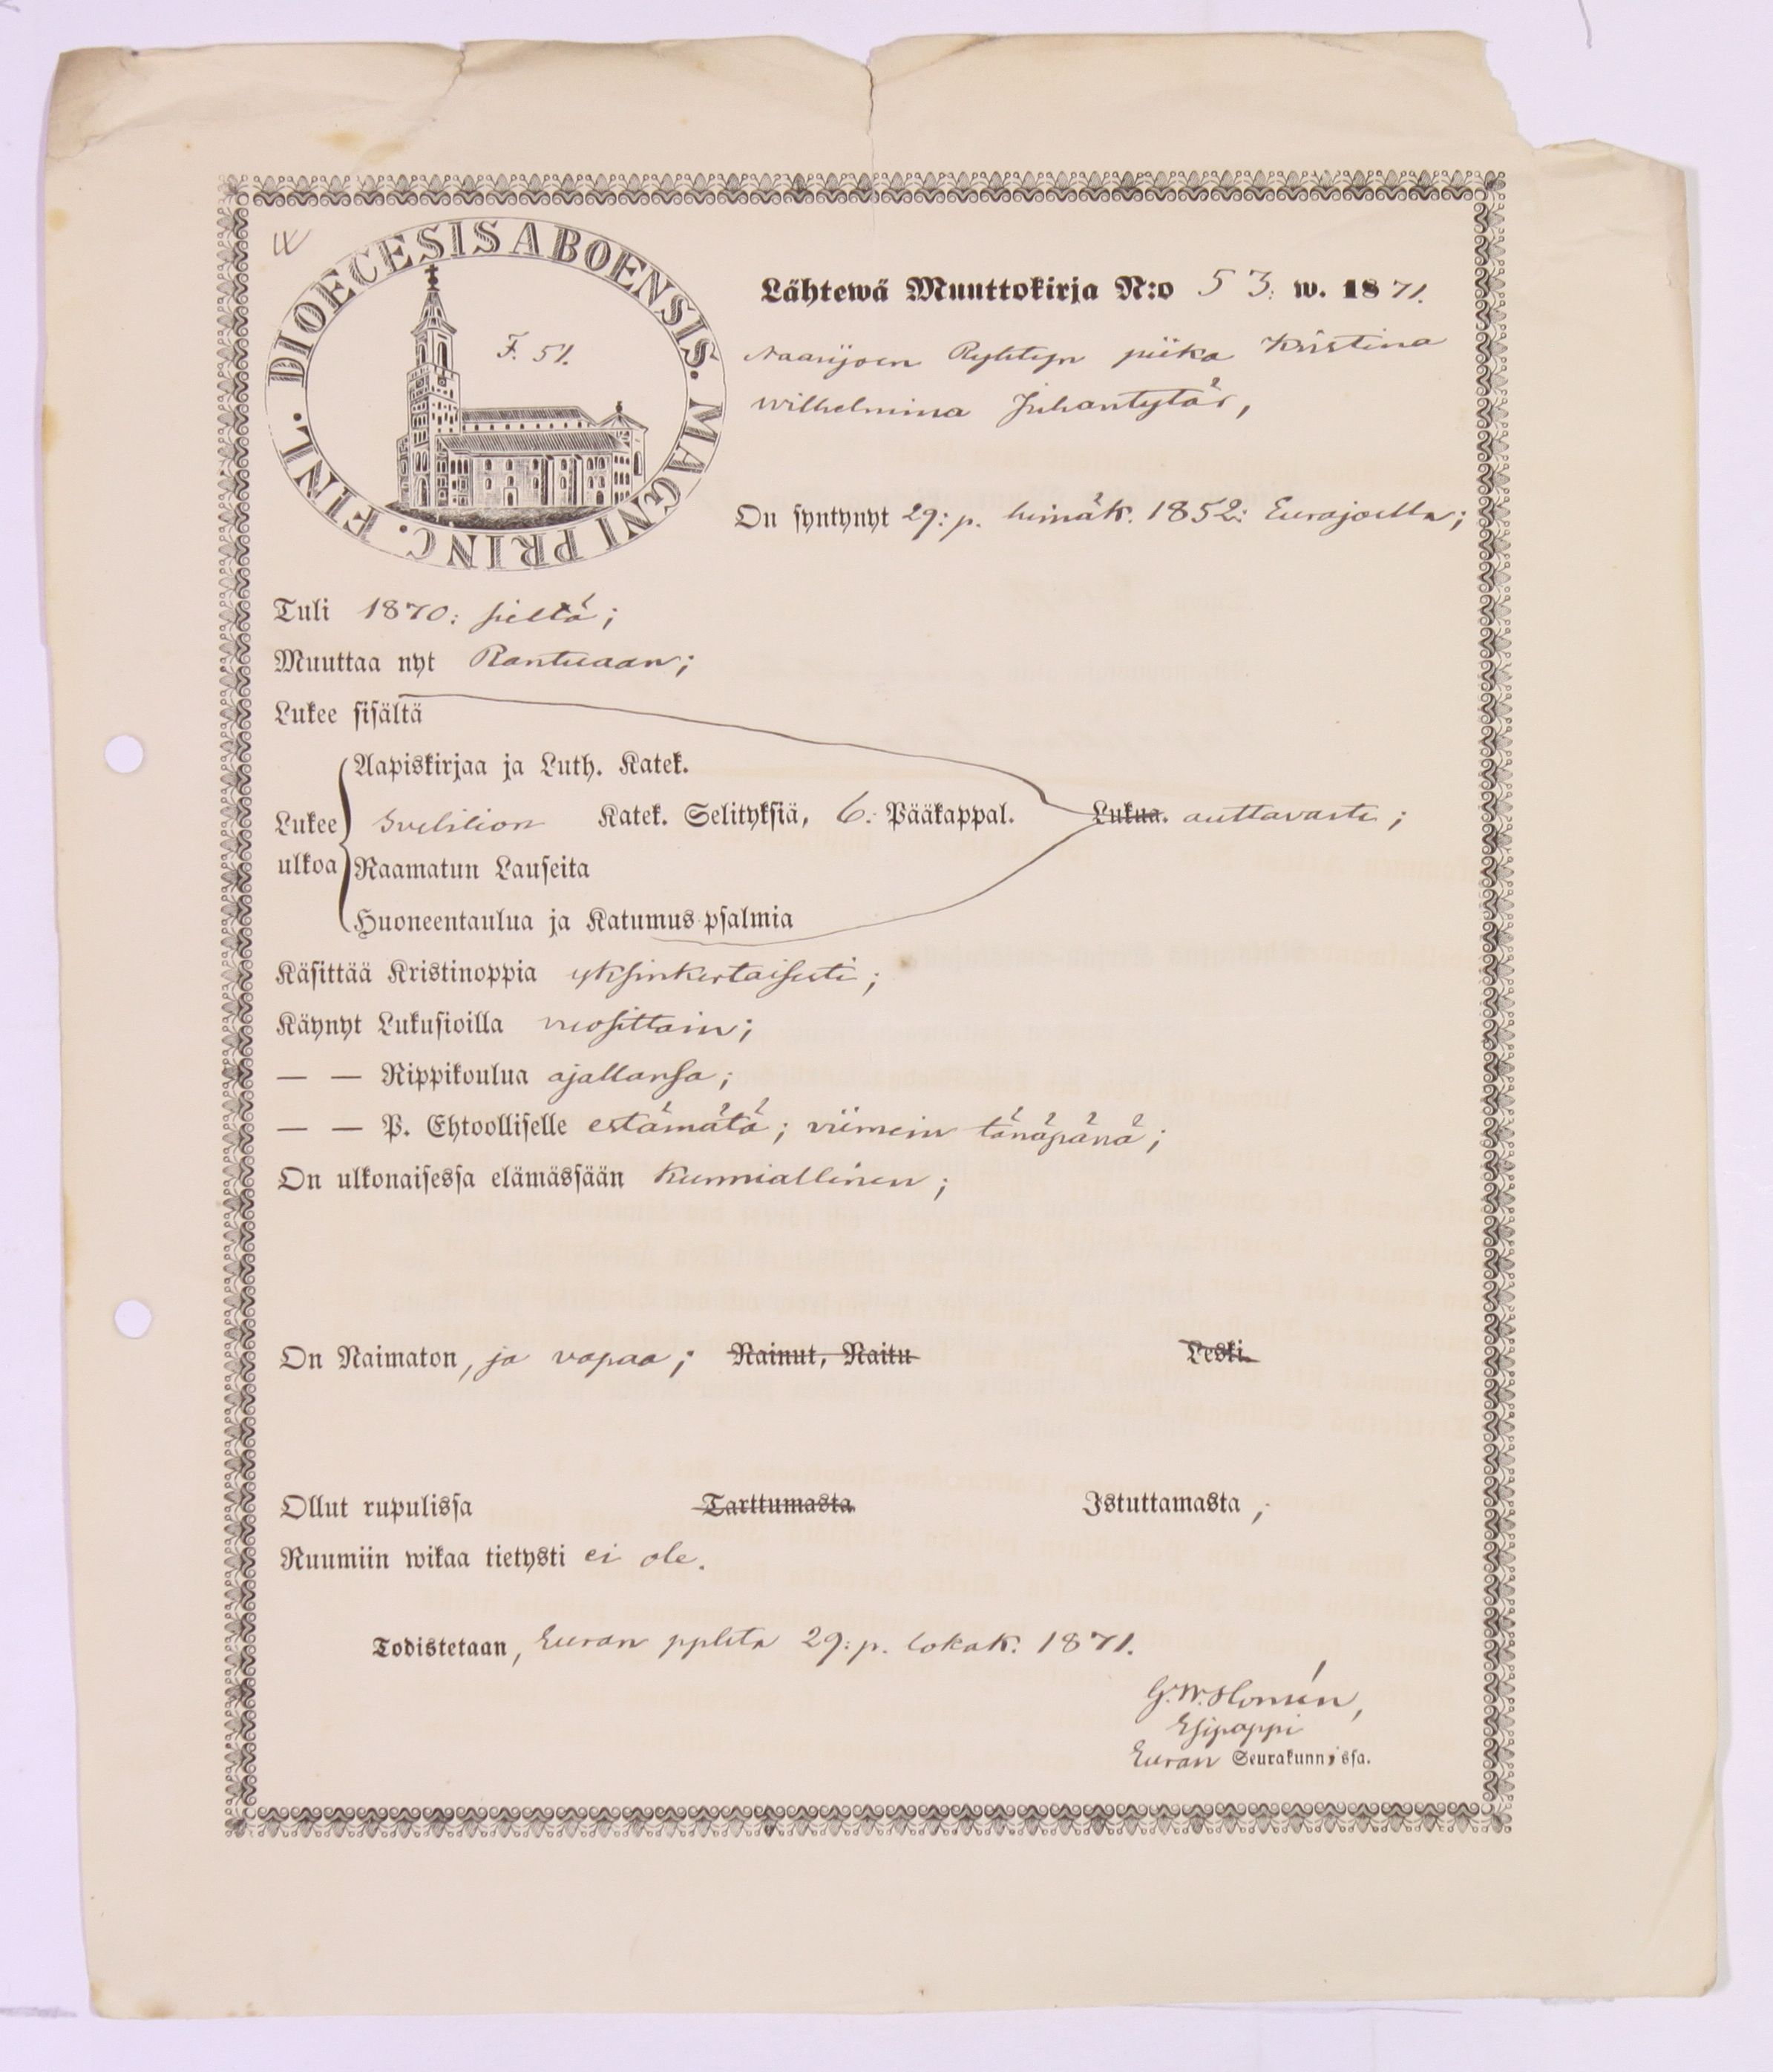 DIOECESIS ABOENSIS. MAGNI PRINC. FINL.
F. 51.
Lähtewä Muuttokirja N:o 53. w. 1871.
Naarjoen Ryhtyn piika Kristina
Wilhelmina Juhantytär,
On syntynyt 29: p. heinäk. 1852: Eurajoella;
Tuli 1870: sieltä;
Muuttaa nyt Raumaan;
Lukee sisältä
Aapiskirjaa ja Luth. Katek.
Lukee Svebilion Katek. Selityksiä, 6. Pääkappal. Lukua. auttavasti;
ulkoa Raamatun Lauseita
Huoneentaulua ja Katumus-psalmia
Käsittää Kristinoppia yksinkertaisesti;
Käynyt Lukusioilla vuosittain;
— — Rippikoulua ajallansa;
— — P. Ehtoolliselle estämätä; viimein tänäpänä;
On ulkonaisessa elämässään kunniallinen;
On Naimaton, ja vapaa; Nainut, Naitu Leski.
Ollut rupulissa Tarttumasta Istuttamasta;
Ruumiin wikaa tietysti ei ole.
Todistetaan, Euran pplsta 29: p. lokak. 1871.
G. W.
Esipappi
Euran Seurakunnissa.